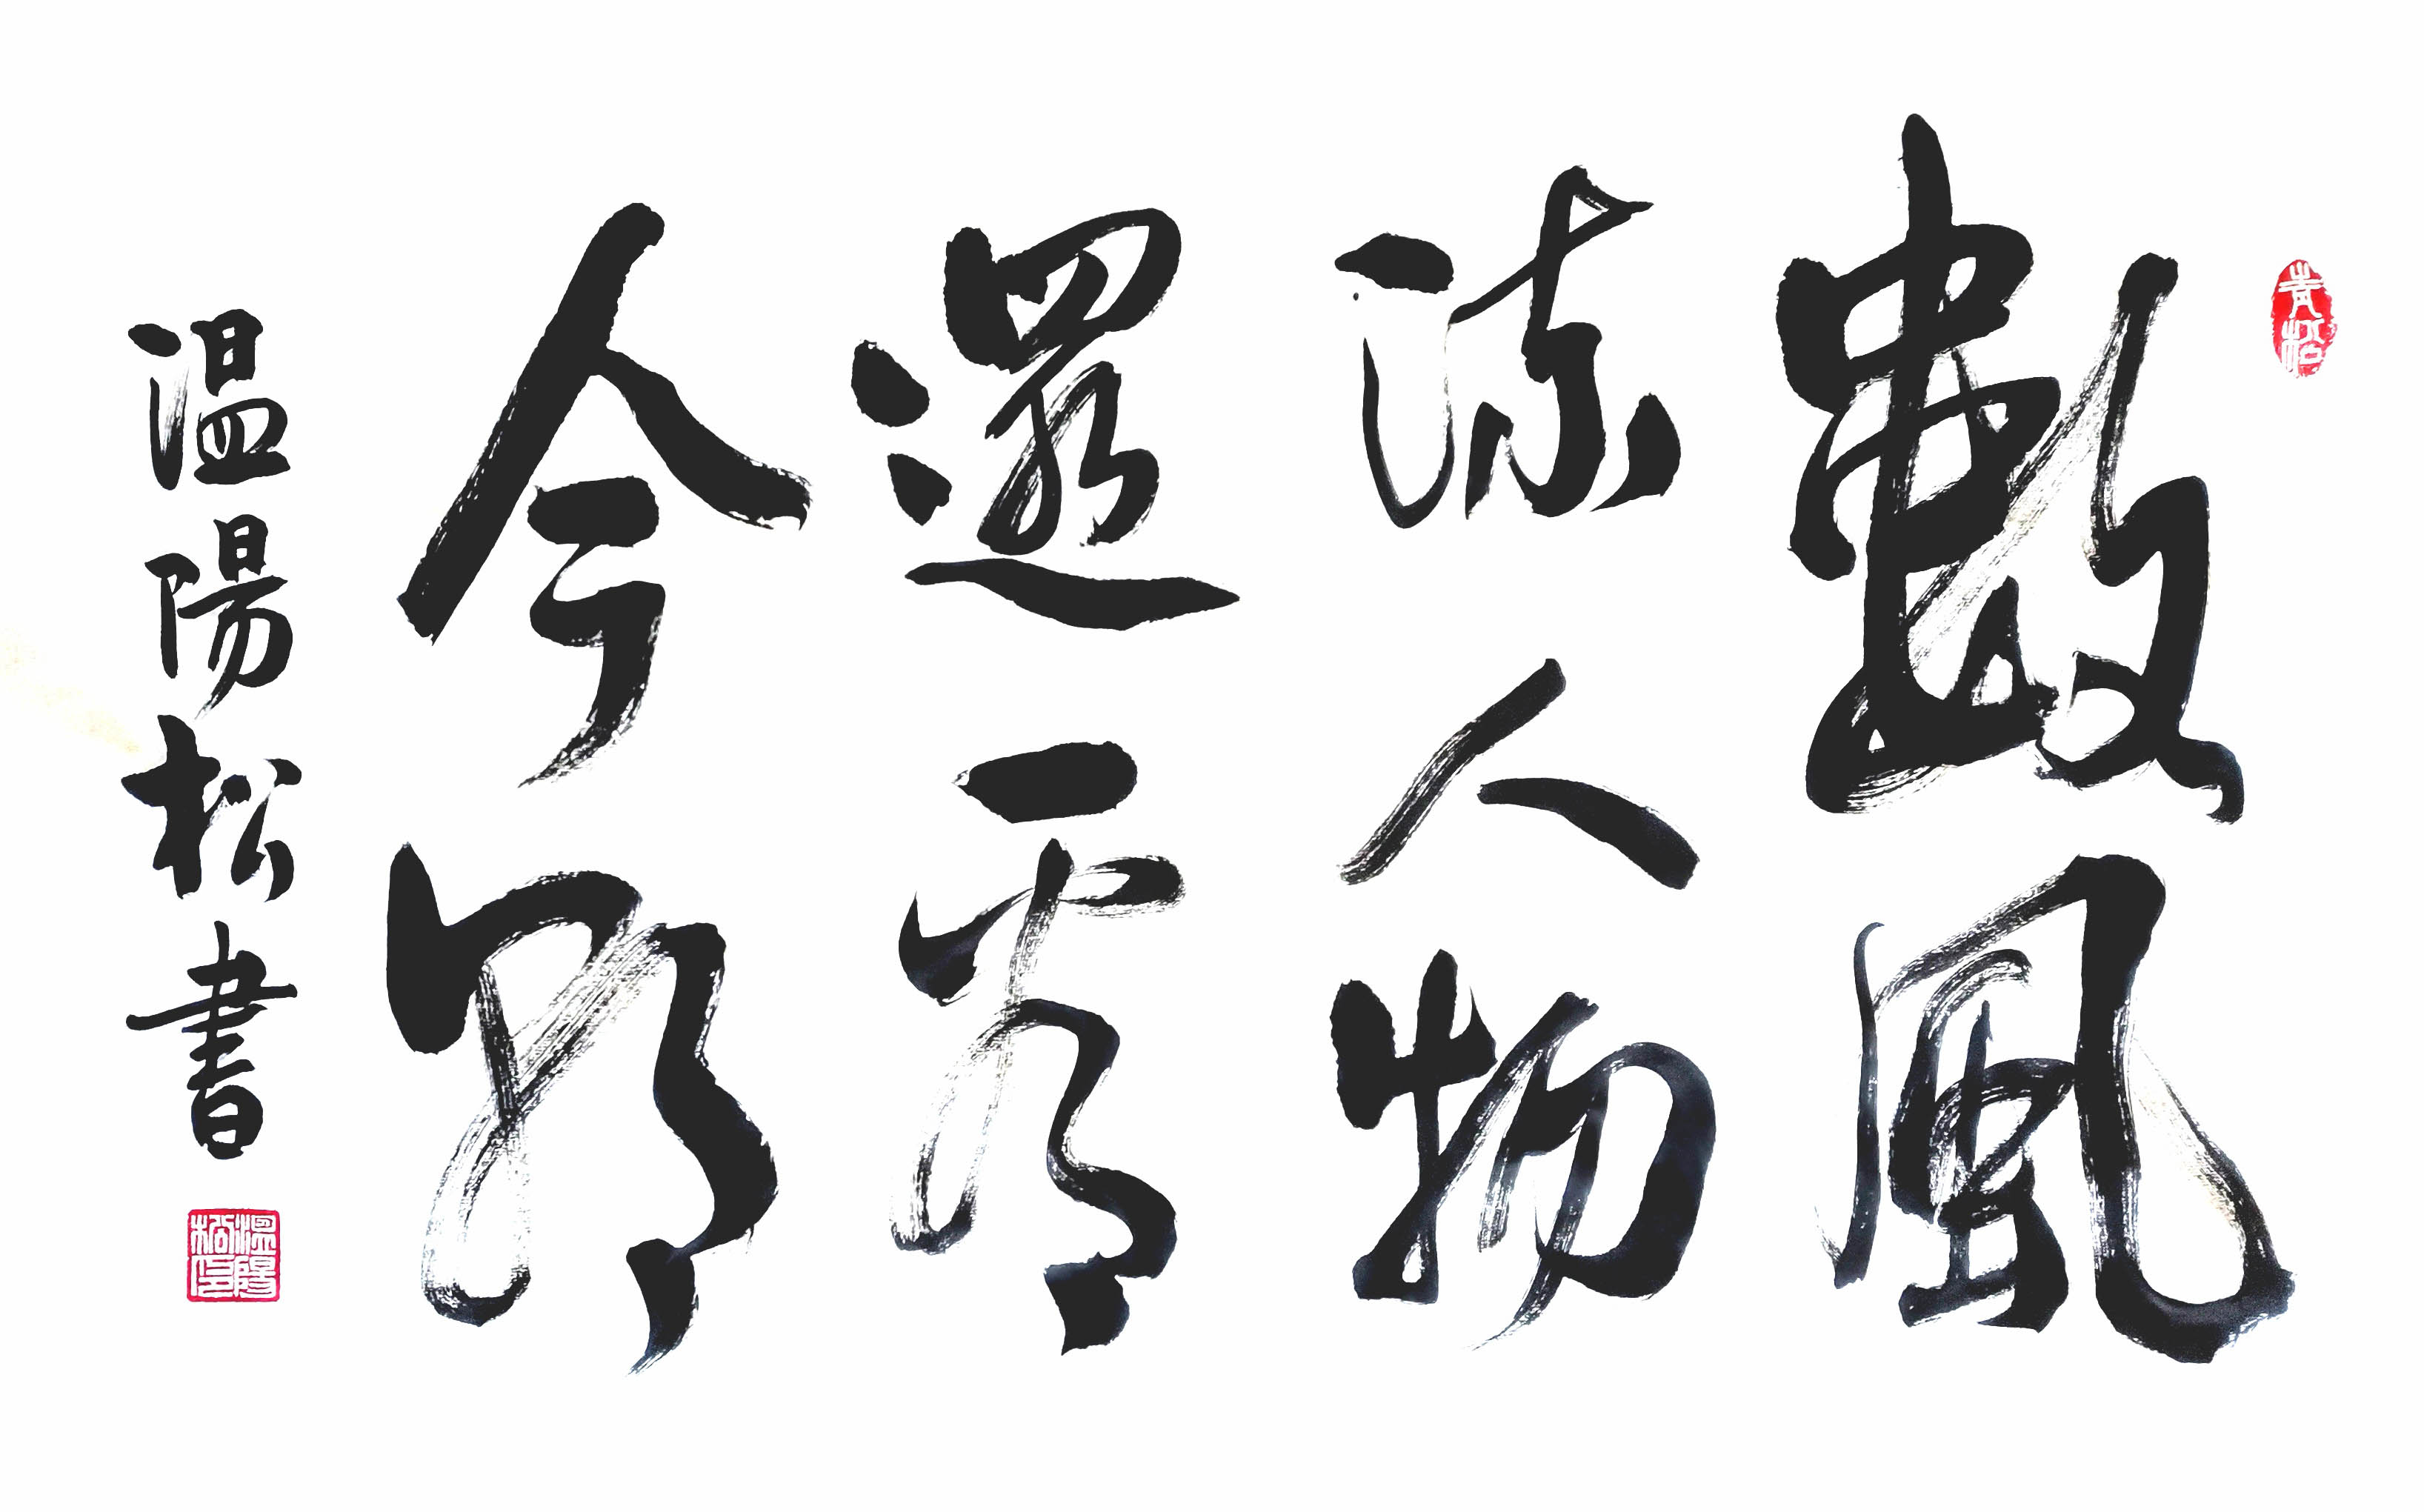 數風
流人物
還看
今朝
溫陽松書
青松
溫陽松印